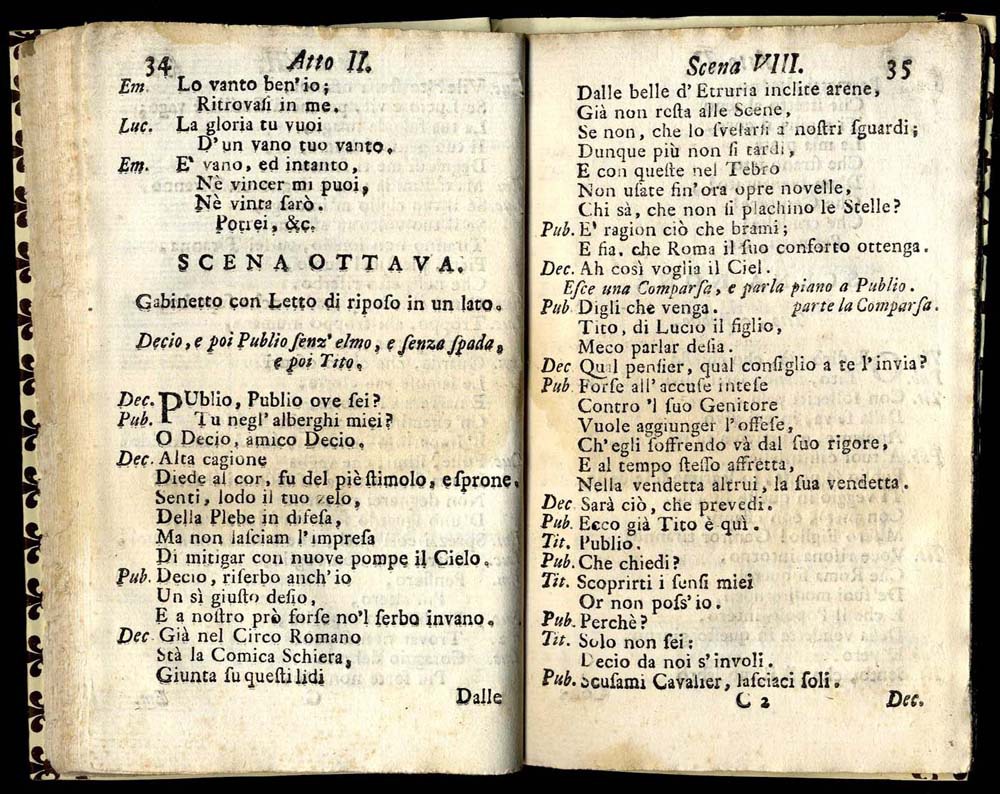 34 Atto II.
Em. Lo vanto ben' io;
Ritrovaſi in me.
Luc. La gloria tu vuoi
D'un vano tuo vanto.
Em. E' vano, ed intanto,
Nè vincer mi puoi,
Nè vinta ſarò.
Potrei, &c.
SCENA OTTAVA.
Gabinetto con Letto di ripoſo in un lato.
Decio, e poi Publio ſenz' elmo, e ſenza ſpada,
e poi Tito.
Dec. PUblio, Publio ove ſei?
Pub. Tu negl' alberghi miei?
O Decio, amico Decio.
Dec. Alta cagione
Diede al cor, fu del piè ſtimolo, e ſprone.
Senti, lodo il tuo zelo,
Della Plebe in difeſa,
Ma non laſciam l'impreſa
Di mitigar con nuove pompe il Cielo.
Pub. Decio, riſerbo anch' io
Un sì giuſto deſio,
E a noſtro prò forſe no'l ſerbo invano.
Dec. Già nel Circo Romano
Stà la Comica Schiera,
Giunta ſu queſti lidi
Dalle
Scena VIII. 35
Dalle belle d' Etruria inclite arene,
Già non reſta alle Scene,
Se non, che lo ſvelarſi a' noſtri ſguardi;
Dunque più non ſi tardi,
E con queſte nel Tebro
Non uſate fin' ora opre novelle,
Chi sà, che non ſi plachino le Stelle?
Pub. E' ragion ciò che brami;
E fia, che Roma il ſuo conforto ottenga.
Dec. Ah così voglia il Ciel.
Eſce una Comparſa, e parla piano a Publio.
Pub. Digli che venga. parte la Comparſa.
Tito, di Lucio il figlio,
Meco parlar deſia.
Dec. Qual penſier, qual conſiglio a te l'invia?
Pub. Forſe all' accuſe inteſe
Contro 'l ſuo Genitore
Vuole aggiunger l'offeſe,
Ch' egli ſoffrendo và dal ſuo rigore,
E al tempo ſteſſo affretta,
Nella vendetta altrui, la ſua vendetta.
Dec. Sarà ciò, che prevedi.
Pub. Ecco già Tito è quì.
Tit. Publio.
Pub. Che chiedi?
Tit. Scoprirti i ſenſi miei
Or non poſs' io.
Pub. Perchè?
Tit. Solo non ſei:
Decio da noi s' involi.
Pub. Scuſami Cavalier, laſciaci ſoli.
C 2 Dec.